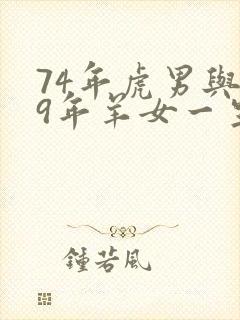 74年虎男與
9年羊女一
鍾若風